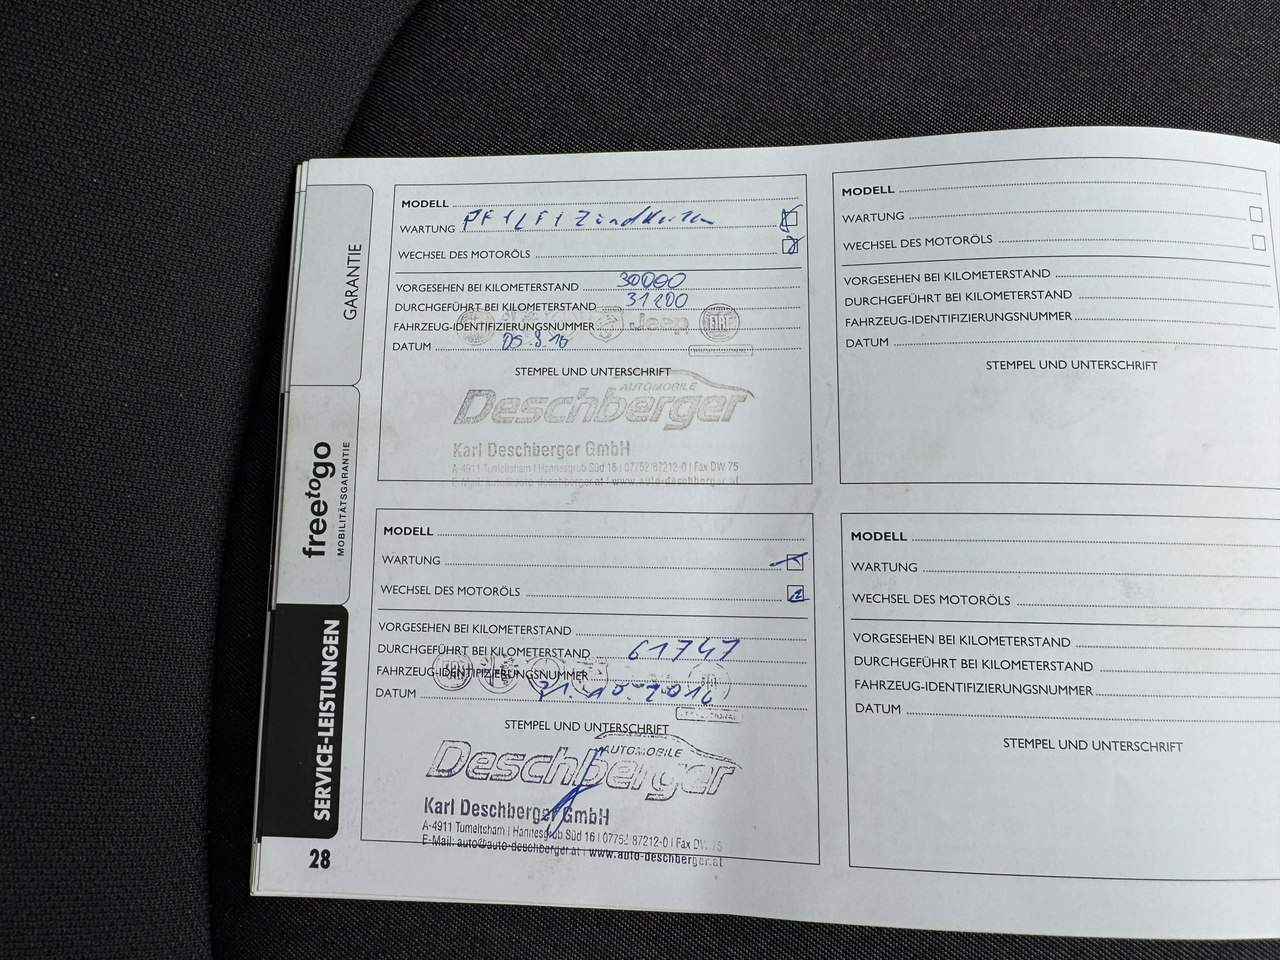 GARANTIE
freetogo
MOBILITÄTSGARANTIE
SERVICE-LEISTUNGEN
28
MODELL
WARTUNG PF1/F1 Zündkerzen
WECHSEL DES MOTORÖLS
VORGESEHEN BEI KILOMETERSTAND 30000
DURCHGEFÜHRT BEI KILOMETERSTAND 31200
FAHRZEUG-IDENTIFIZIERUNGSNUMMER Jeep FIAT
DATUM 05.8.16
STEMPEL UND UNTERSCHRIFT
AUTOMOBILE
Deschberger
Karl Deschberger GmbH
A-4911 Tumeltsham | Hannesgrub Süd 16 | 07752 87212-0 | Fax DW 75
E-Mail: auto@auto-deschberger.at | www.auto-deschberger.at
MODELL
WARTUNG
WECHSEL DES MOTORÖLS
VORGESEHEN BEI KILOMETERSTAND
DURCHGEFÜHRT BEI KILOMETERSTAND 61747
FAHRZEUG-IDENTIFIZIERUNGSNUMMER
DATUM 31.10.2016
STEMPEL UND UNTERSCHRIFT
AUTOMOBILE
Deschberger
Karl Deschberger GmbH
A-4911 Tumeltsham | Hannesgrub Süd 16 | 07752 87212-0 | Fax DW 75
E-Mail: auto@auto-deschberger.at | www.auto-deschberger.at
MODELL
WARTUNG
WECHSEL DES MOTORÖLS
VORGESEHEN BEI KILOMETERSTAND
DURCHGEFÜHRT BEI KILOMETERSTAND
FAHRZEUG-IDENTIFIZIERUNGSNUMMER
DATUM
STEMPEL UND UNTERSCHRIFT
MODELL
WARTUNG
WECHSEL DES MOTORÖLS
VORGESEHEN BEI KILOMETERSTAND
DURCHGEFÜHRT BEI KILOMETERSTAND
FAHRZEUG-IDENTIFIZIERUNGSNUMMER
DATUM
STEMPEL UND UNTERSCHRIFT